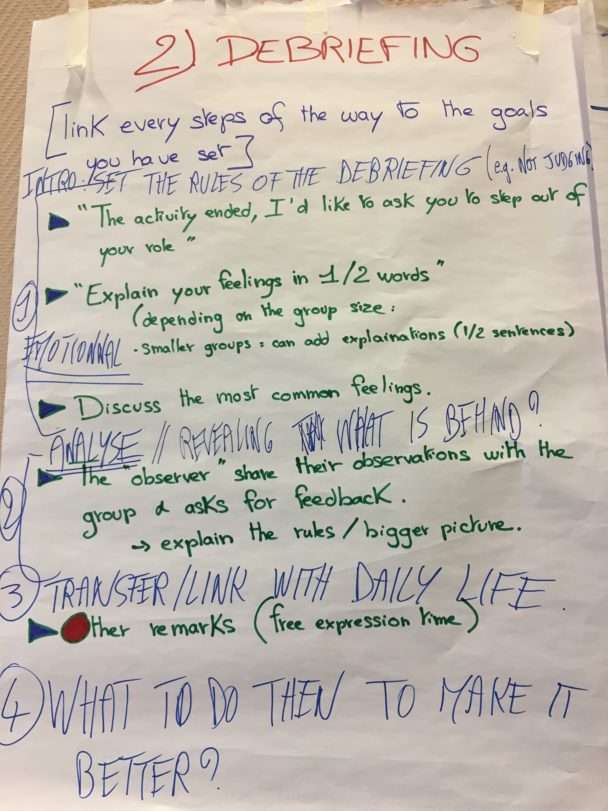 2) DEBRIEFING
[link every steps of the way to the goals
you have set]
INTRO: SET THE RULES OF THE DEBRIEFING (e.g. NOT JUDGING)
"The activity ended, I'd like to ask you to step out of
your role"
① "Explain your feelings in 1/2 words"
(depending on the group size:
EMOTIONNAL · smaller groups: can add explainations (1/2 sentences)
Discuss the most common feelings.
ANALYSE // REVEALING WHAT IS BEHIND?
② The "observer" share their observations with the
group & asks for feedback.
→ explain the rules / bigger picture.
③ TRANSFER/LINK WITH DAILY LIFE
Other remarks (free expression time)
④ WHAT TO DO THEN TO MAKE IT
BETTER?